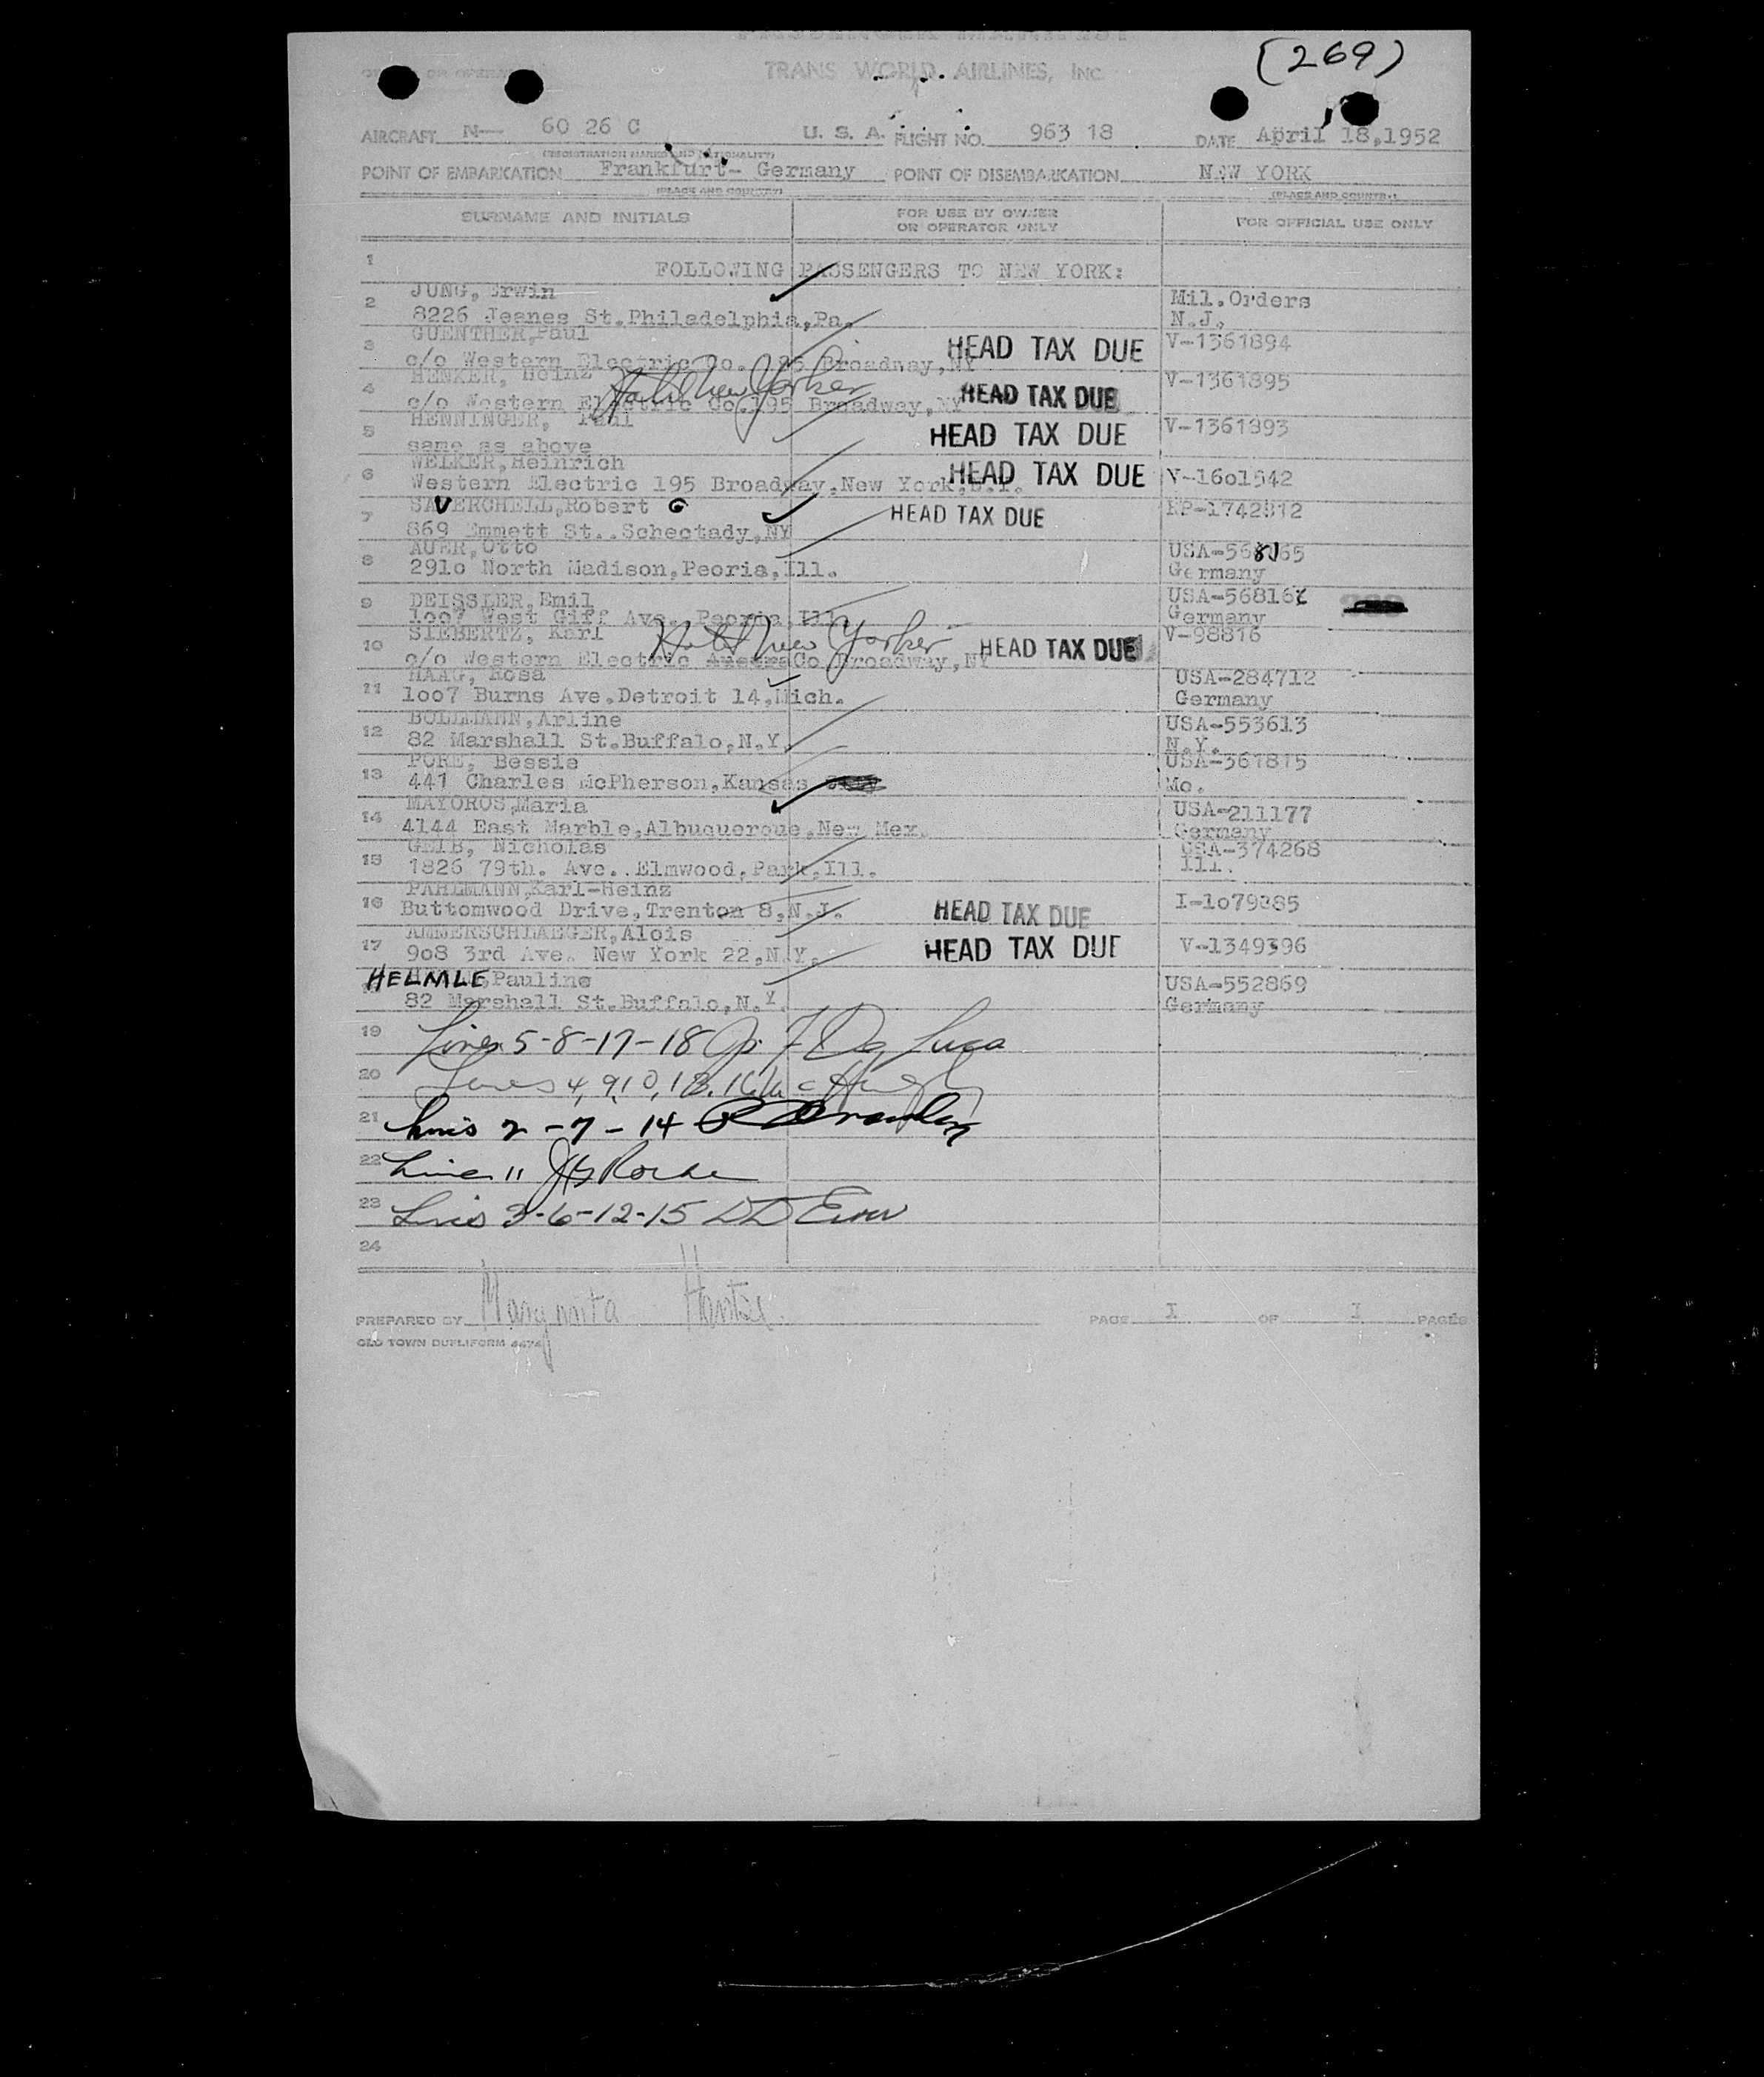 (269)
PASSENGER MANIFEST
TRANS WORLD AIRLINES, INC.
AIRCRAFT N— 60 26 C U. S. A. FLIGHT NO. 963 18 DATE April 18,1952
(REGISTRATION MARKS AND NATIONALITY)
POINT OF EMBARKATION Frankfurt- Germany POINT OF DISEMBARKATION NEW YORK
(PLACE AND COUNTRY) (PLACE AND COUNTRY)
SURNAME AND INITIALS FOR USE BY OWNER OR OPERATOR ONLY FOR OFFICIAL USE ONLY
1 FOLLOWING PASSENGERS TO NEW YORK:
2 JUNG, Erwin Mil.Orders
8226 Jeanes St.Philadelphia,Pa. N.J.
3 GUENTHER,Paul HEAD TAX DUE V-1361894
c/o Western Electric Co. Broadway,NY
4 HENKER, Heinz Hotel New Yorker HEAD TAX DUE V-1361895
c/o Western Electric Co.195 Broadway,NY
5 HENNINGER, Paul HEAD TAX DUE V-1361893
same as above
6 WELKER,Heinrich HEAD TAX DUE V-16o1542
Western Electric 195 Broadway,New York,N.Y.
7 SAVERCHELL,Robert G HEAD TAX DUE RP-1742812
869 Emmett St..Schectady,NY
8 AUER,Otto USA-568165
291o North Madison,Peoria,Ill. Germany
9 DEISSLER,Emil USA-568166
1oo7 West Giff Ave. Peoria,Ill. Germany
10 SIEBERTZ, Karl Hotel New Yorker HEAD TAX DUE V-98816
c/o Western Electric Co.Broadway,NY
11 HAAG, Rosa USA-284712
1oo7 Burns Ave.Detroit 14,Mich. Germany
12 BOLLMANN,Arline USA-553613
82 Marshall St.Buffalo,N.Y. N.Y.
13 PORE, Bessie USA-361815
441 Charles McPherson,Kansas Mo.
14 MAYOROS,Maria USA-211177
4144 East Marble,Albuquerque,New Mex. Germany
15 GEIB, Nicholas USA-374268
1826 79th. Ave..Elmwood,Park,Ill. Ill.
16 PAHLMANN,Karl-Heinz HEAD TAX DUE I-1o79385
Buttomwood Drive,Trenton 8,N.J.
17 AMMERSCHLAEGER,Alois HEAD TAX DUE V-1349396
9o8 3rd Ave. New York 22,N.Y.
HELMLE,Pauline USA-552869
82 Marshall St.Buffalo,N.Y. Germany
19 Lines 5-8-17-18 De Luca
20 Lines 4,9,10,13.16
21 Lines 2-7-14
22 Line 11 Roche
23 Lines 3-6-12-15
24
PREPARED BY PAGE I OF I PAGES
OLD TOWN DUPLIFORM